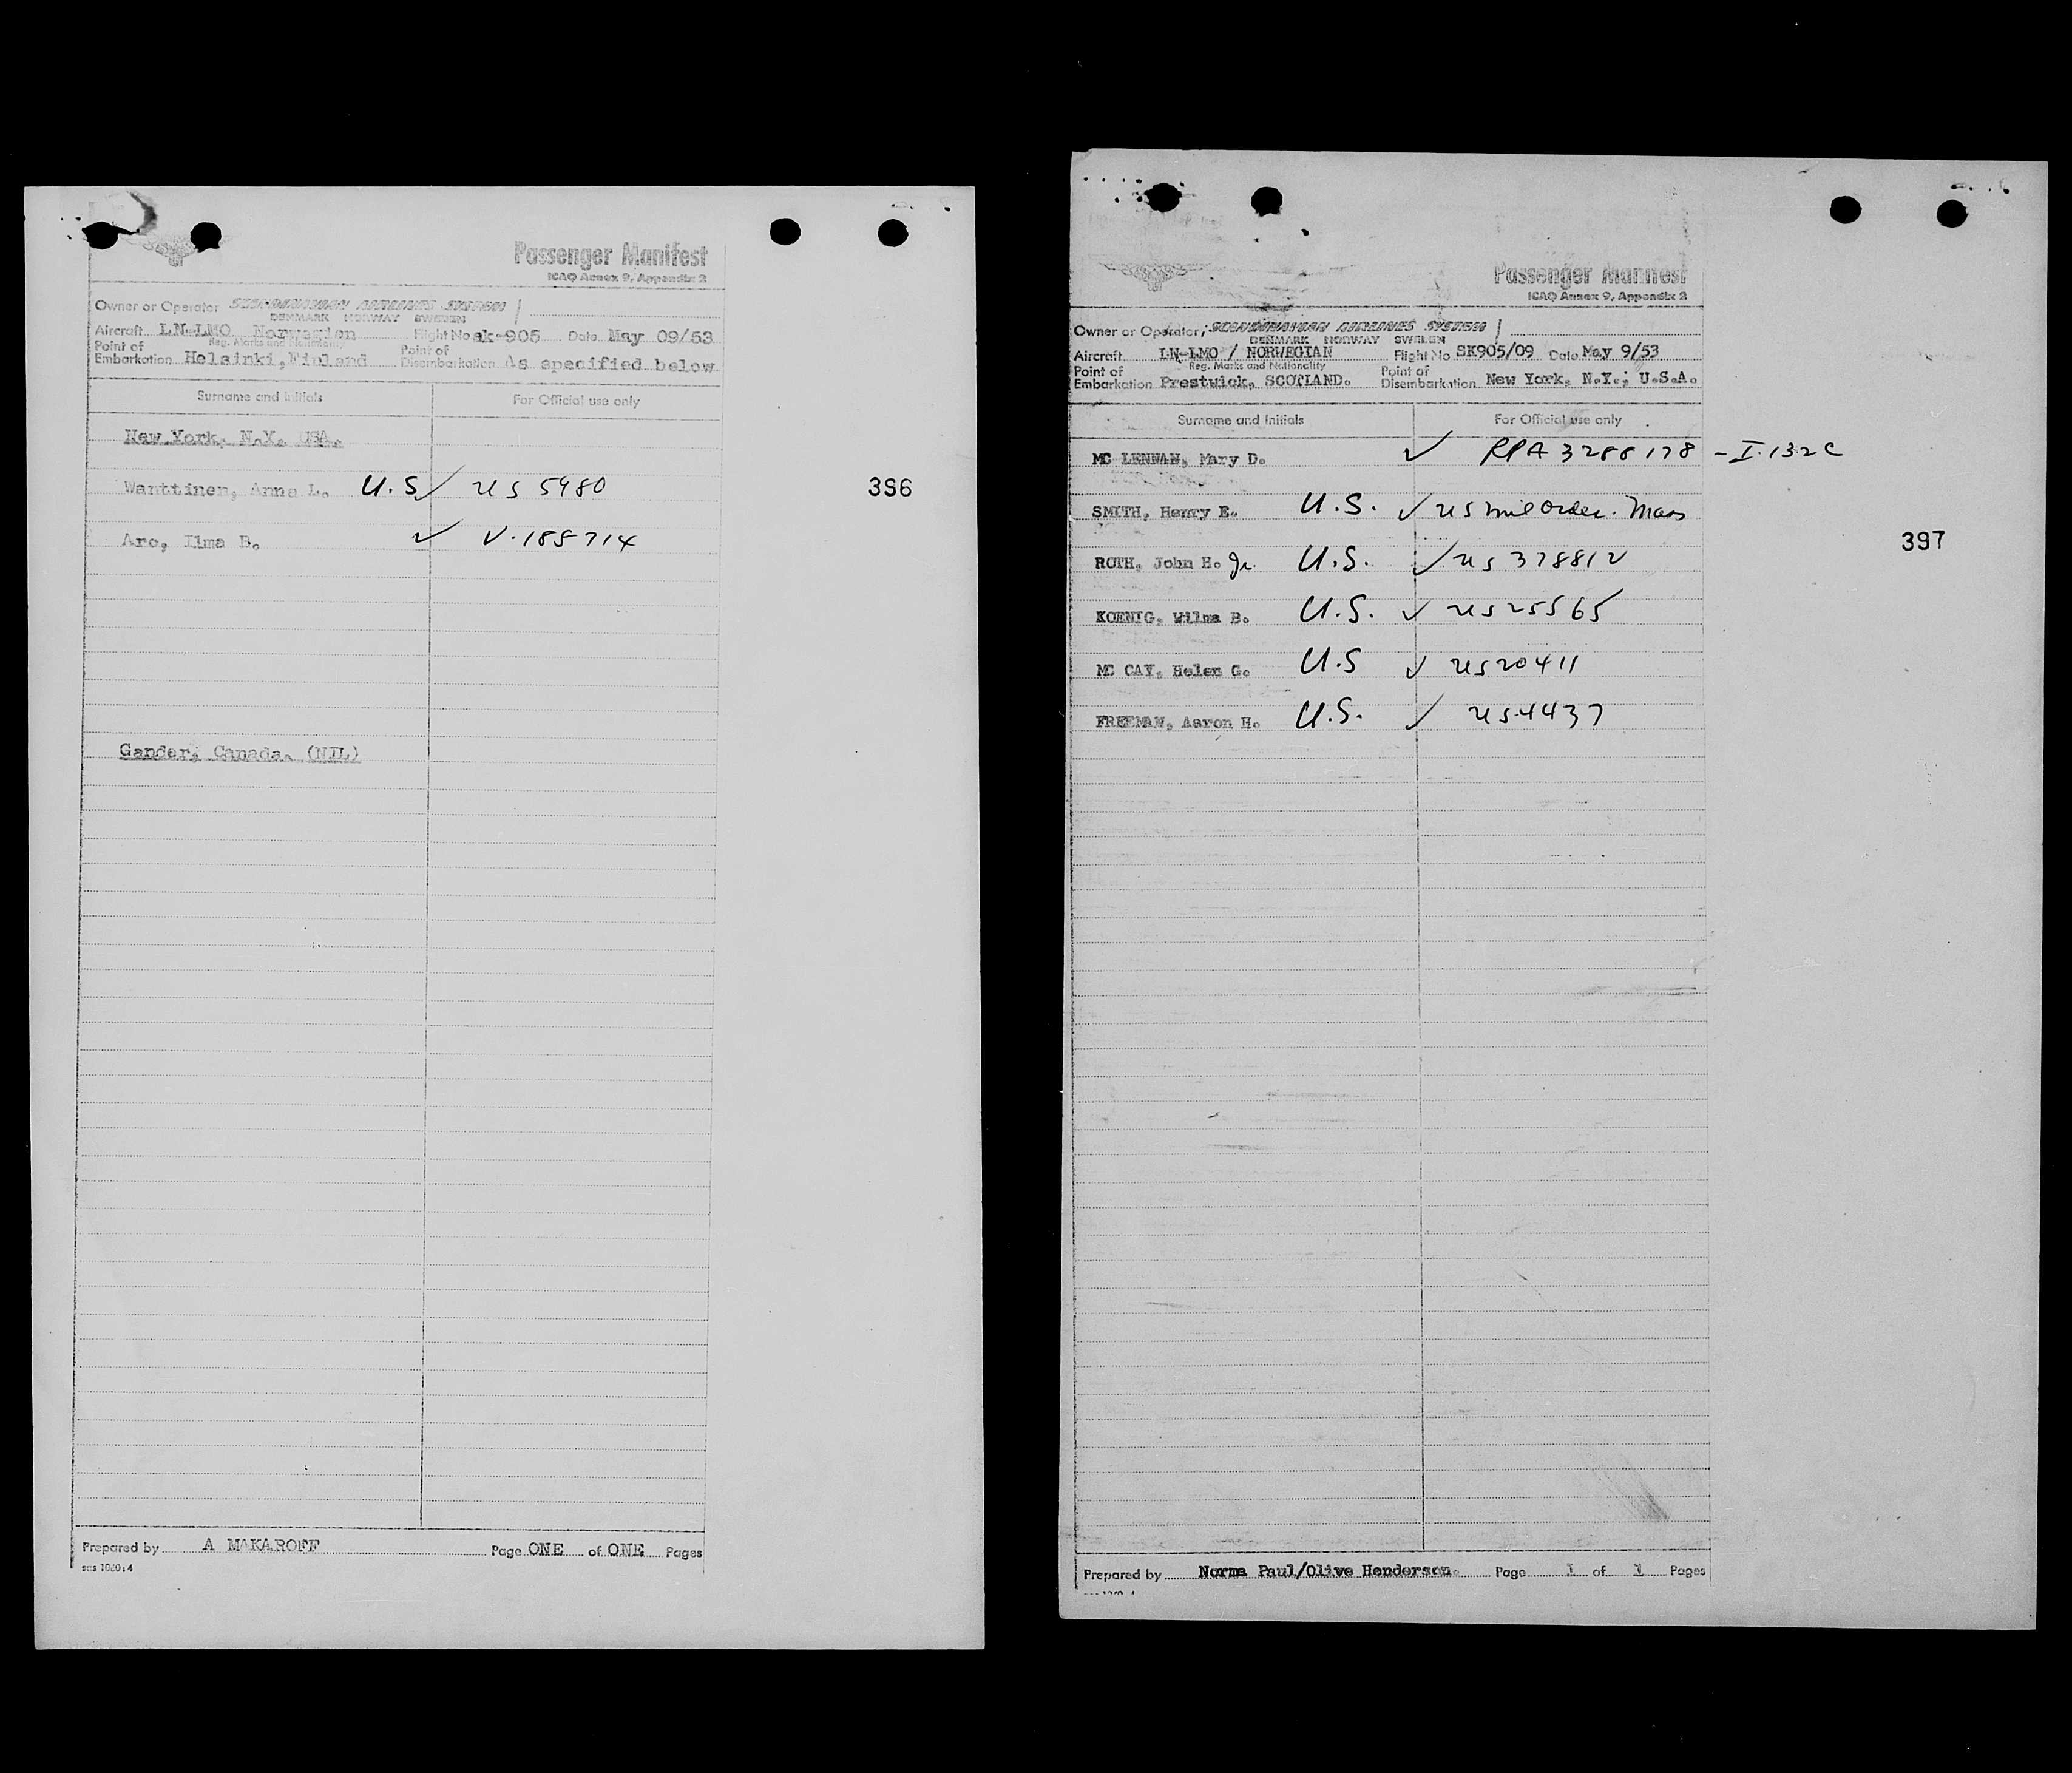 Passenger Manifest
ICAO Annex 9, Appendix 2
Owner or Operator SCANDINAVIAN AIRLINES SYSTEM
DENMARK NORWAY SWEDEN
Aircraft LN-LMO Norwegian Flight No sk-905 Date May 09/53
Reg. Marks and Nationality
Point of Embarkation Helsinki, Finland Point of Disembarkation As specified below
Surname and Initials For Official use only
New York, N.Y. USA.
Wanttinen, Anna L. U.S ✓ US 5980
396
Aro, Ilma B. ✓ V-188714
Gander, Canada. (NIL)
Prepared by A MAKAROFF Page ONE of ONE Pages
Passenger Manifest
ICAO Annex 9, Appendix 2
Owner or Operator SCANDINAVIAN AIRLINES SYSTEM
DENMARK NORWAY SWEDEN
Aircraft LN-LMO / NORWEGIAN Flight No SK905/09 Date May 9/53
Reg. Marks and Nationality
Point of Embarkation Prestwick, SCOTLAND. Point of Disembarkation New York, N.Y., U.S.A.
Surname and Initials For Official use only
MC LENNAN, Mary D. ✓ RPA 3288178 - I-132C
SMITH, Henry E. U.S. ✓ US mil Order.
397
ROTH, John H. Jr. U.S. ✓ US 378812
KOENIG, Wilma B. U.S. ✓ US 25565
MC CAY, Helen G. U.S ✓ US 20411
FREEMAN, Aaron H. U.S. ✓ US 4437
Prepared by Norma Paul/Olive Henderson. Page 1 of 1 Pages